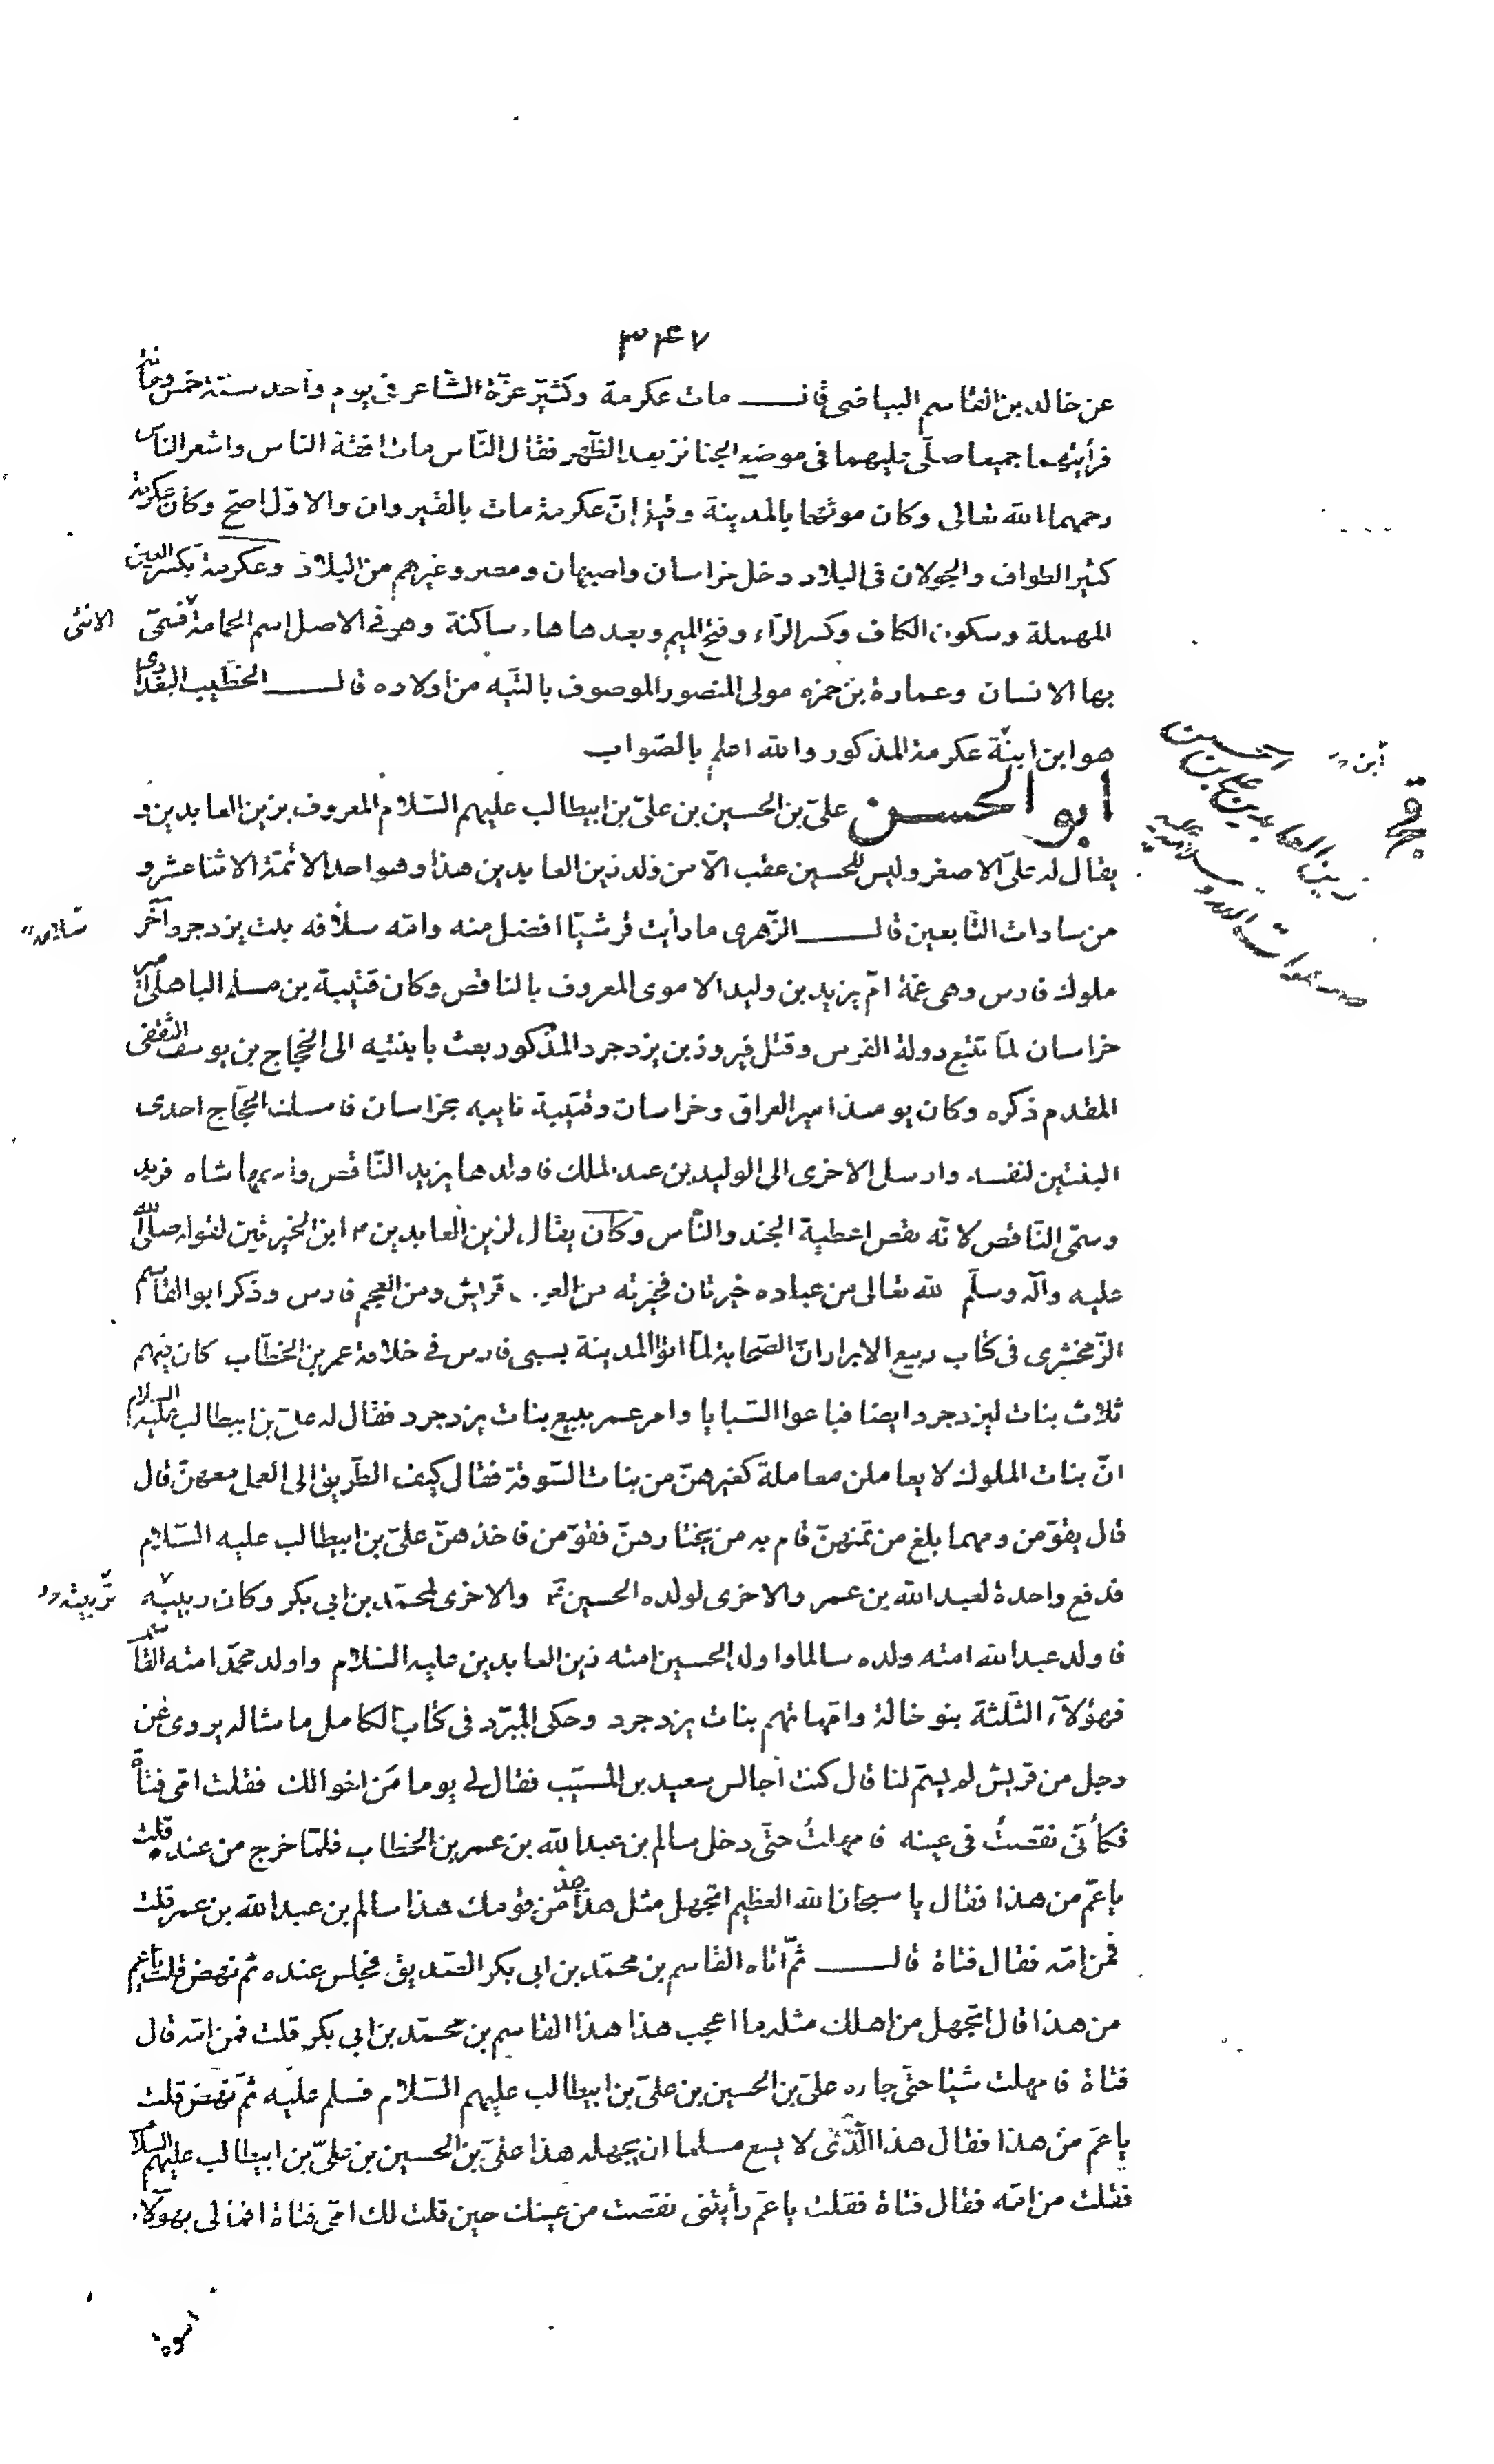 ٣۴٧
عن خالد بن القاسم البياضى قال مات عكرمة وكثيّر عزّة الشّاعر فى يوم واحد سنة خمس ومائة
فرأيتهما جميعا صلّى عليهما فى موضع الجنائز بعد الظّهر فقال النّاس مات افقه الناس واشعر الناس
رحمهما الله تعالى وكان موتهما بالمدينة وقيل انّ عكرمة مات بالقيروان والاوّل اصحّ وكان عكرمة
كثير الطواف والجولان فى البلاد دخل خراسان واصبهان ومصر وغيرهم من البلاد وعكرمة بكسر العين
المهملة وسكون الكاف وكسر الرّاء وفتح الميم وبعدها هاء ساكنة وهو فى الاصل اسم الحمامة فسمّى
الانثى
بها الانسان وعمارة بن حمزه مولى المنصور الموصوف بالتيه من اولاده قال الخطيب البغدادى
هو ابن ابنة عكرمة المذكور والله اعلم بالصّواب
ابو الحسن علىّ بن الحسين بن علىّ بن ابيطالب عليهم السّلام المعروف بزين العابدين و
يقال له علىّ الاصغر وليس للحسين عقب الّا من ولد زين العابدين هذا وهو احد الائمّة الاثنا عشر و
من سادات التّابعين قال الزّهرى ما رأيت قرشيّا افضل منه وامّه سلافه بنت يزدجرد آخر
ملوك فارس وهى عمّة امّ يزيد بن وليد الاموى المعروف بالناقص وكان قتيبة بن مسلم الباهلى امير
خراسان لمّا تتبع دولة الفرس وقتل فيروز بن يزدجرد المذكور بعث بابنتيه الى الحجّاج بن يوسف الثقفى
المقدم ذكره وكان يومئذ امير العراق وخراسان وقتيبة نايبه بخراسان فامسك الحجّاج احدى
البنتين لنفسه وارسل الاخرى الى الوليد بن عبد الملك فاولدها يزيد النّاقص واسمها شاه فريد
وسمّى النّاقص لانّه نقص اعطية الجند والنّاس وكان يقال لزين العابدين ابن الخيرتين لقوله صلّى الله
عليه وآله وسلّم لله تعالى من عباده خيرتان فخيرته من العرب قريش ومن العجم فارس وذكر ابو القاسم
الزّمخشرى فى كتاب ربيع الابرار انّ الصّحابة لمّا اتوا المدينة بسبى فارس فى خلافة عمر بن الخطّاب كان فيهم
ثلاث بنات ليزدجرد ايضا فباعوا السّبايا وامر عمر ببيع بنات يزدجرد فقال له علىّ بن ابيطالب عليه السلام
انّ بنات الملوك لا يعاملن معاملة كغيرهنّ من بنات السّوقة فقال كيف الطّريق الى العمل معهنّ قال
قال يقوّمن ومهما بلغ من ثمنهنّ قام به من يختارهنّ فقوّمن فاخذهنّ علىّ بن ابيطالب عليه السّلام
فدفع واحدة لعبد الله بن عمر والاخرى لولده الحسين والاخرى لمحمّد بن ابى بكر وكان ربيبه
فاولد عبد الله امته ولده سالما واولد الحسين امته زين العابدين عليه السّلام واولد محمّد امته القاسم
فهؤلاء الثّلثة بنو خالة وامّهاتهم بنات يزدجرد وحكى المبرّد فى كتاب الكامل ما مثاله يروى عن
رجل من قريش لم يسمّ لنا قال كنت اجالس سعيد بن المسيّب فقال لى يوما من اخوالك فقلت امّى فتاة
فكأنّى نقصتُ فى عينه فامهلتُ حتّى دخل سالم بن عبد الله بن عمر بن الخطاب فلمّا خرج من عنده قلت
يا عمّ من هذا فقال يا سبحان الله العظيم اتجهل مثل هذا من قومك هذا سالم بن عبد الله بن عمر قلت
فمن امّه فقال فتاة قال ثمّ اتاه القاسم بن محمّد بن ابى بكر الصّديق فجلس عنده ثم نهض قلت يا عم
من هذا قال اتجهل من اهلك مثله ما اعجب هذا هذا القاسم بن محمّد بن ابى بكر قلت فمن امّه قال
فتاة فامهلت شيئا حتّى جاءه علىّ بن الحسين بن علىّ بن ابيطالب عليهم السّلام فسلم عليه ثمّ نهض قلت
يا عمّ من هذا فقال هذا الّذى لا يسع مسلما ان يجهله هذا علىّ بن الحسين بن علىّ بن ابيطالب عليهم السلام
فقلت من امّه فقال فتاة فقلت يا عمّ رأيتنى نقصت من عينك حين قلت لك امّى فتاة افمالى بهؤلاء
اسوة